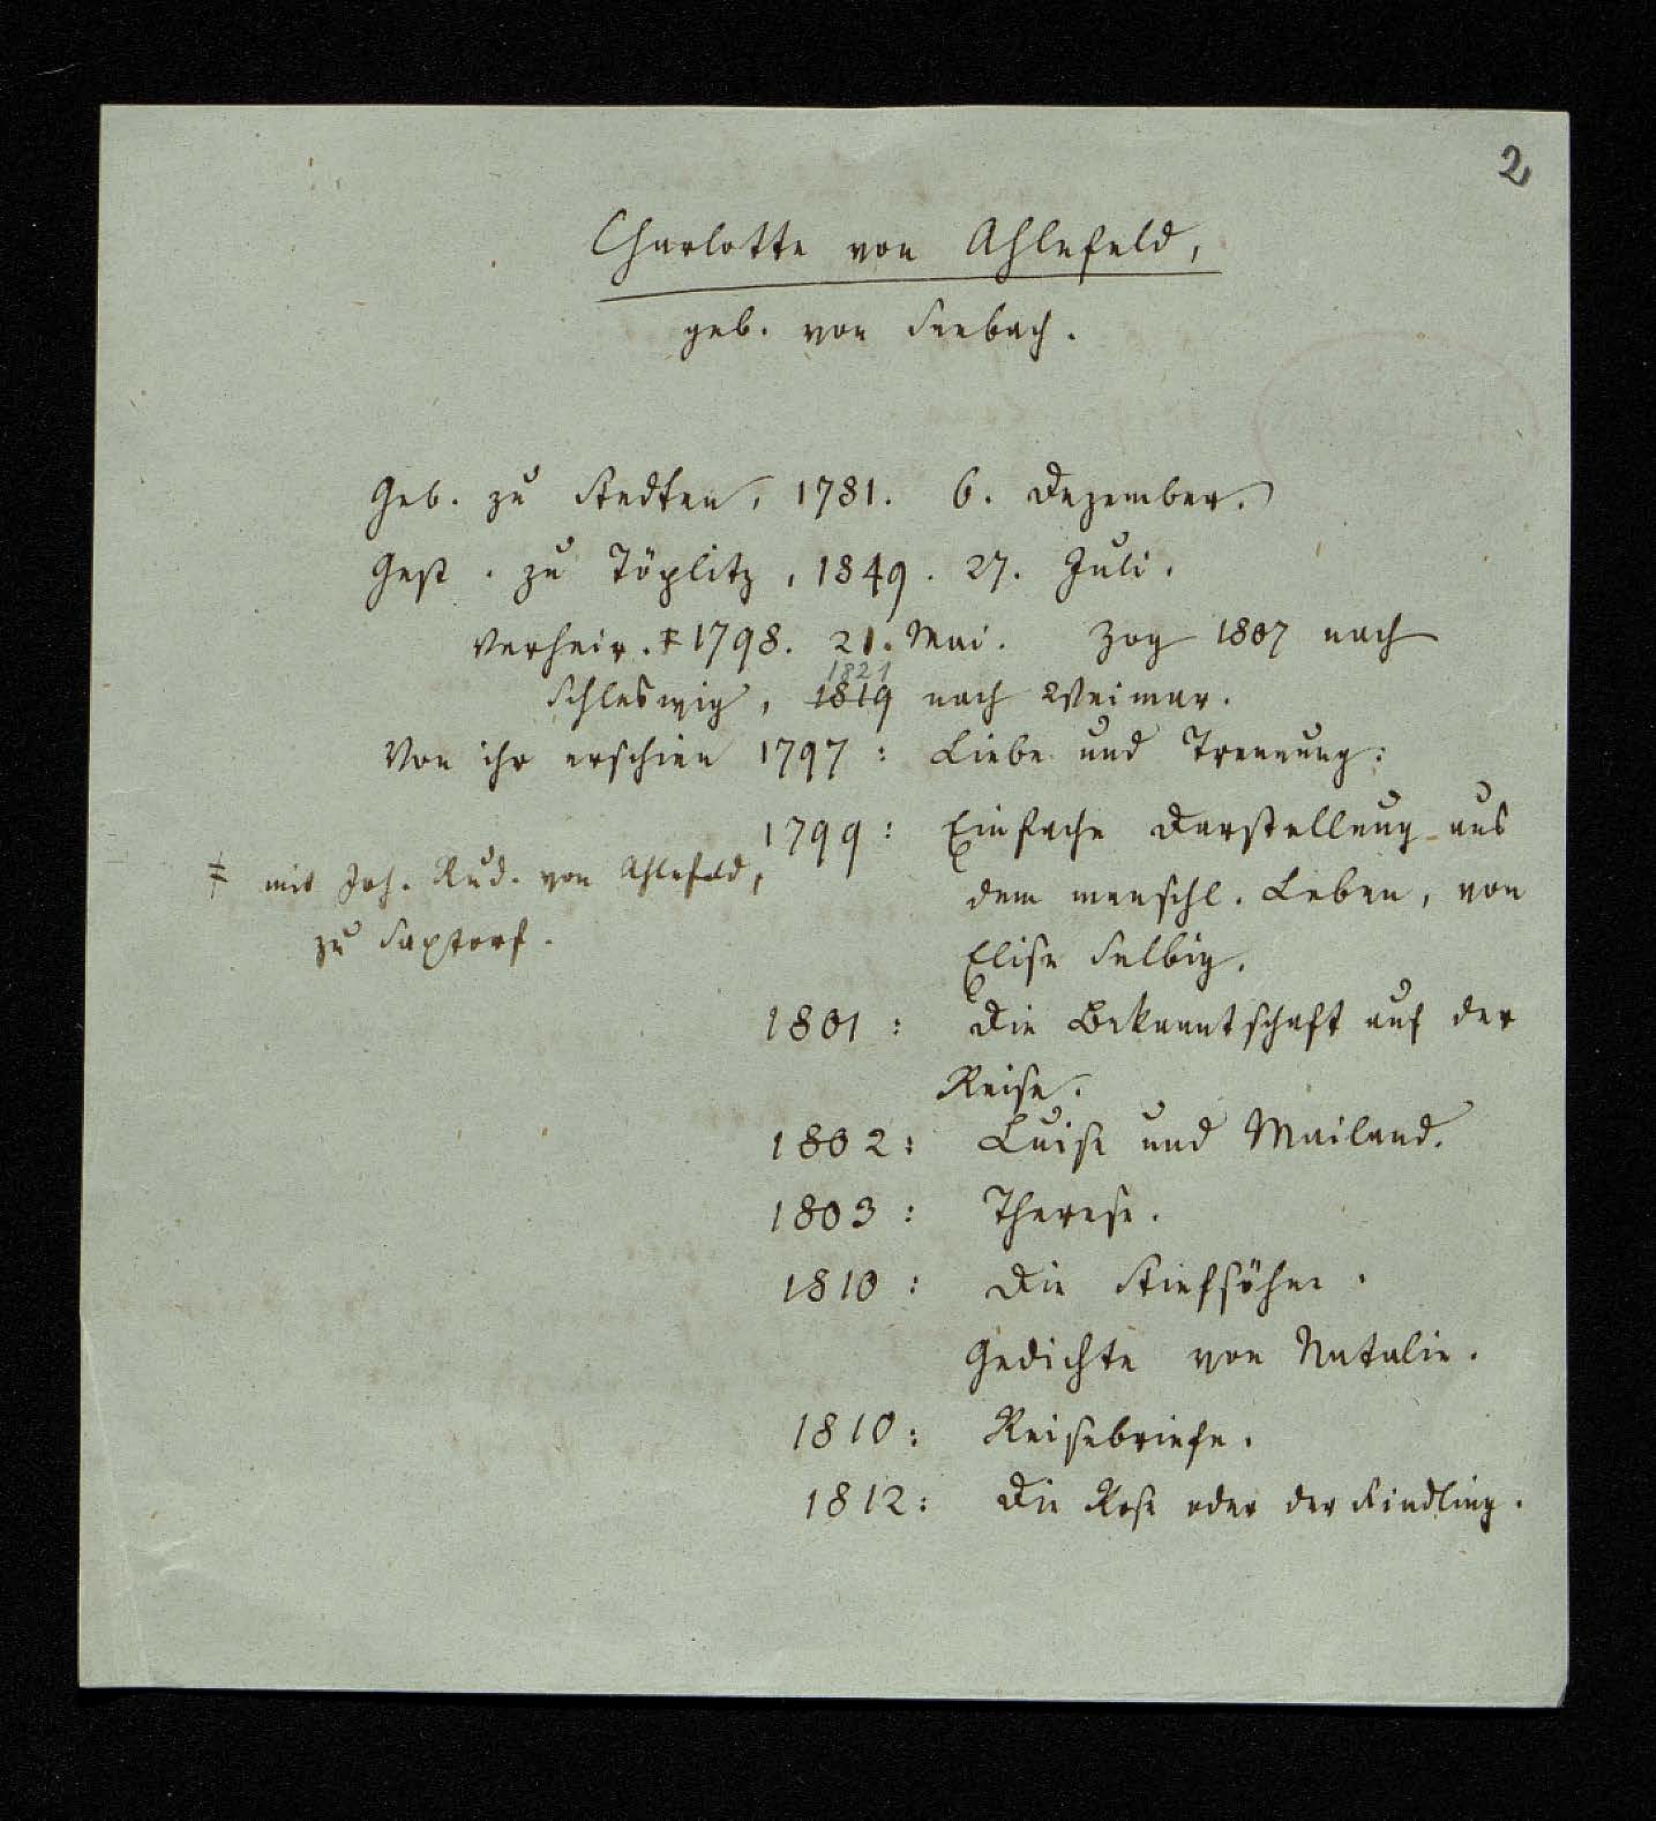 2
Charlotte von Ahlefeld,
geb. von Seebach.
Geb. zu Stedten, 1781. 6. Dezember.
Gest. zu Töplitz, 1849. 27. Juli.
Verheir. ‡ 1798. 21. Mai. Zog 1807 nach
1821
Schleswig, 1819 nach Weimar.
Von ihr erschien 1797: Liebe und Trennung:
1799: Einfache Darstellung aus
dem menschl. Leben, von
Elise Selbig.
‡ mit Joh. Rud. von Ahlefeld,
zu Saxtorf.
1801: Die Bekanntschaft auf der
Reise.
1802: Luise und Mailand.
1803: Therese.
1810: Die Stiefsöhne.
Gedichte von Natalie.
1810: Reisebriefe.
1812: Die Rose oder der Findling.